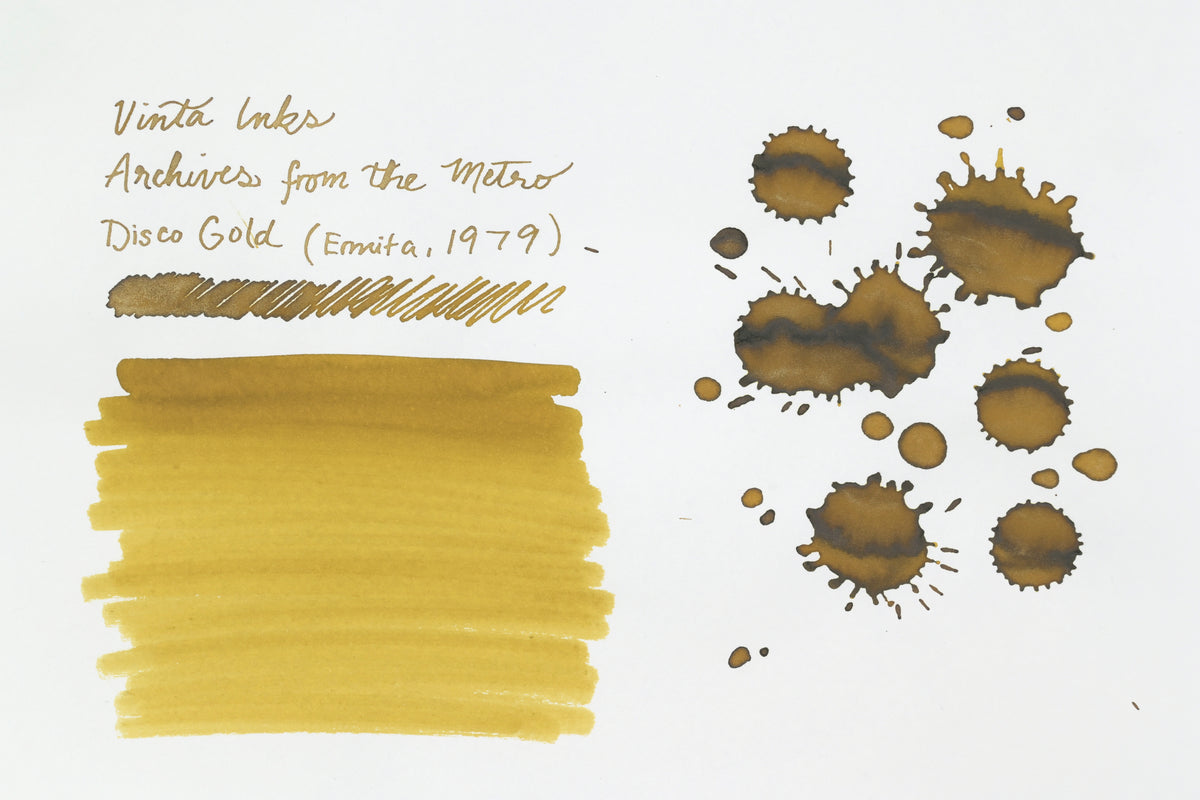 Vinta Inks
Archives from the Metro
Disco Gold (Ermita, 1979)